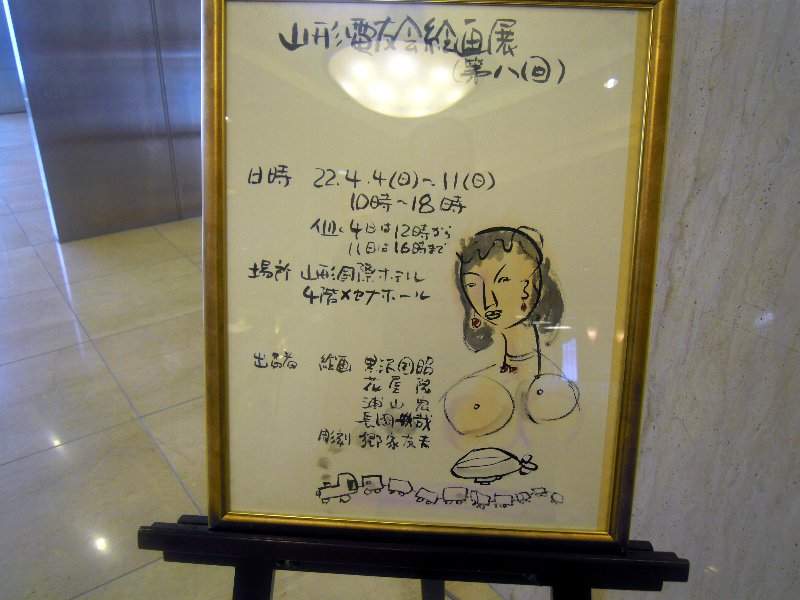 山形雷友会絵画展
(第八回)
日時 22.4.4(日)~11(日)
10時~18時
但し4日は12時から
11日は16時まで
場所 山形国際ホテル
4階メセナホール
出品者 絵画 黒沢国昭
花屋
浦山
長岡 哉
彫刻 郷家友夫